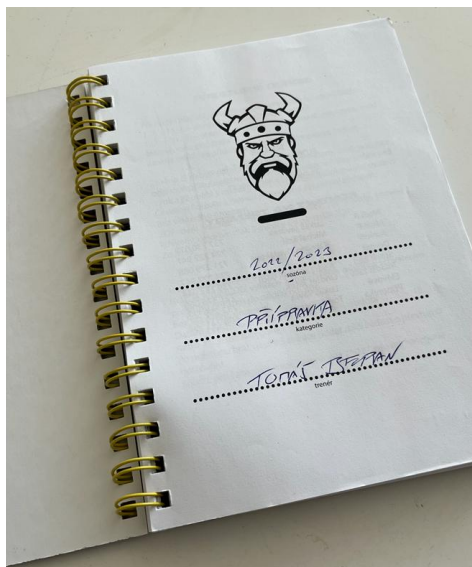 2022/2023
sezóna
PŘÍPRAVKA
kategorie
TOMÁŠ
trenér